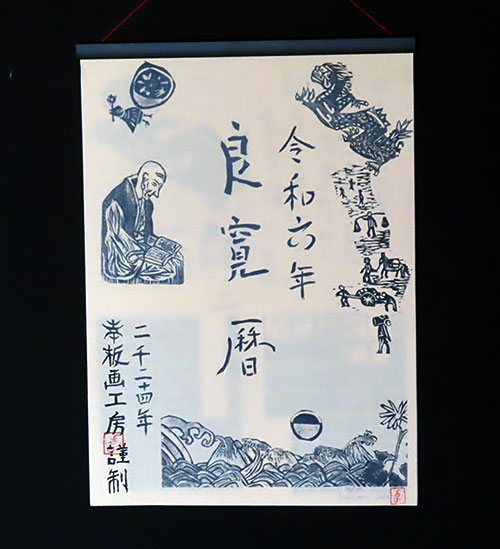 令和六年
良寛暦
二千二十四年
板画工房謹制